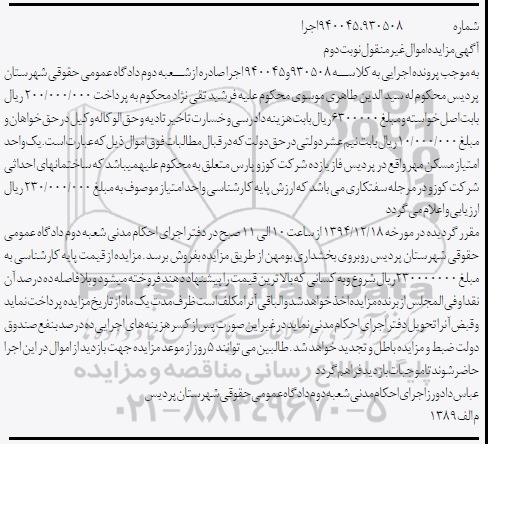 شماره ۹۴۰۰۴۵،۹۳۰۵۰۸اجرا
آگهی مزایده اموال غیر منقول نوبت دوم
به موجب پرونده اجرایی به کلاسه ۹۳۰۵۰۸و۹۴۰۰۴۵ اجرا صادره از شعبه دوم دادگاه عمومی حقوقی شهرستان
پردیس محکوم له سید الدین طاهری موسوی محکوم علیه فرشید تقی نژاد محکوم به پرداخت ۲۰۰/۰۰۰/۰۰۰ ریال
بابت اصل خواسته و مبلغ ۶۳۰۰۰۰۰ ریال بابت هزینه دادرسی و خسارت تاخیر تادیه و حق الوکاله وکیل در حق خواهان و
مبلغ ۱۰/۰۰۰/۰۰۰ ریال بابت نیم عشر دولتی در حق دولت که در قبال مطالبات فوق اموال ذیل که عبارت است. یک واحد
امتیاز مسکن مهر واقع در پردیس فاز یازده شرکت کوزو پارس متعلق به محکوم علیهم میباشد که ساختمانهای احداثی
شرکت کوزو در مرحله سفتکاری می باشد که ارزش پایه کارشناسی واحد امتیاز موصوف به مبلغ ۲۳۰/۰۰۰/۰۰۰ ریال
ارزیابی و اعلام می گردد
مقرر گردیده در مورخه ۱۳۹۴/۱۲/۱۸ از ساعت ۱۰ الی ۱۱ صبح در دفتر اجرای احکام مدنی شعبه دوم دادگاه عمومی
حقوقی شهرستان پردیس روبروی بخشداری بومهن از طریق مزایده بفروش برسد . مزایده از قیمت پایه کارشناسی به
مبلغ ۲۳۰۰۰۰۰۰۰ ریال شروع و به کسانی که بالاترین قیمت را پیشنهاد دهند فروخته میشود و بلافاصله ده درصد آن
نقدا و فی المجلس از برنده مزایده اخذ خواهد شد و الباقی آنرا مکلف است ظرف مدت یک ماه از تاریخ مزایده پرداخت نماید
و قبض آنرا تحویل دفتر اجرای احکام مدنی نماید در غیر این صورت پس از کسر هزینه های اجرایی ده درصد بنفع صندوق
دولت ضبط و مزایده باطل و تجدید خواهد شد. طالبین می توانند ۵ روز از موعد مزایده جهت بازدید از اموال در این اجرا
حاضر شوند تا موجبات بازدید فراهم گردد
عباس دادورز اجرای احکام مدنی شعبه دوم دادگاه عمومی حقوقی شهرستان پردیس
م الف ۱۳۸۹
پایگاه اطلاع رسانی مناقصه و مزایده
۰۲۱-۸۸۳۴۹۶۷۰-۵